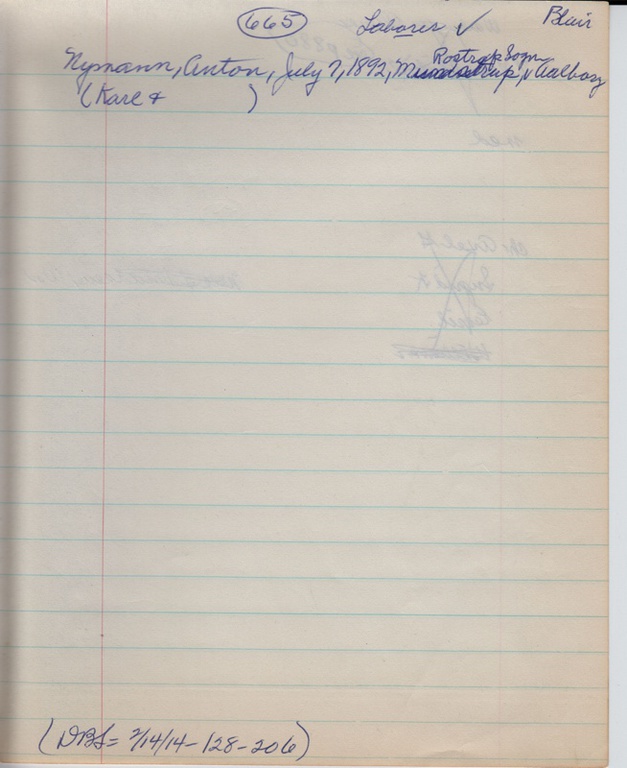 665 Laborer ✓ Blair
Rostrup Sogn
Nymann, Anton, July 7, 1892, Mundstrup, Aalborg
(Karl & )
(DBS = 2/14/14-128-206)